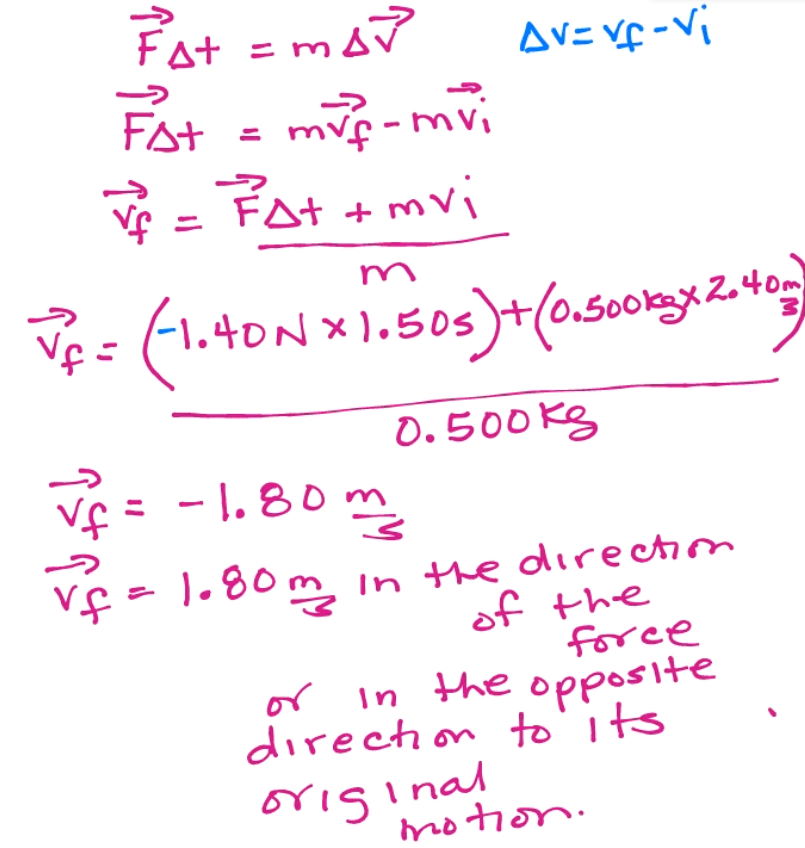 F⃗Δt = mΔv⃗ Δv = vf - vi
F⃗Δt = mv⃗f - mv⃗i
v⃗f = F⃗Δt + mvi
m
v⃗f = (-1.40N × 1.50s) + (0.500kg × 2.40 m/s)
0.500kg
v⃗f = -1.80 m/s
v⃗f = 1.80 m/s in the direction
of the
force
or in the opposite
direction to its
original
motion.